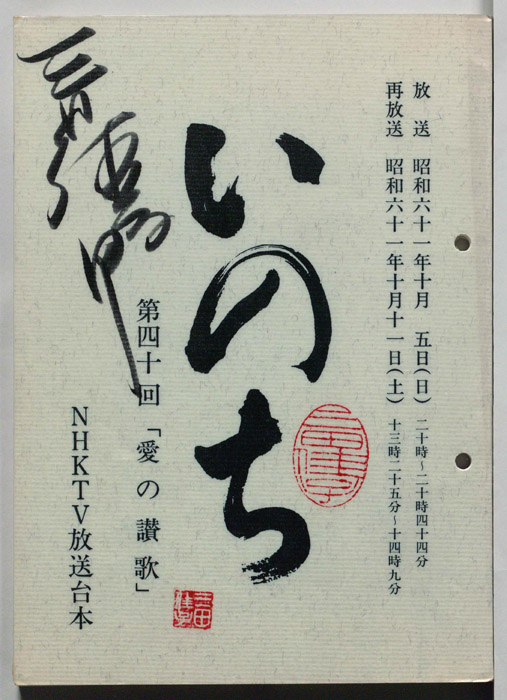 放送 昭和六十一年十月 五日(日) 二十時~二十時四十四分
再放送 昭和六十一年十月十一日(土) 十三時二十五分~十四時九分
いのち
第四十回「愛の讃歌」
NHKTV放送台本
三田佳子